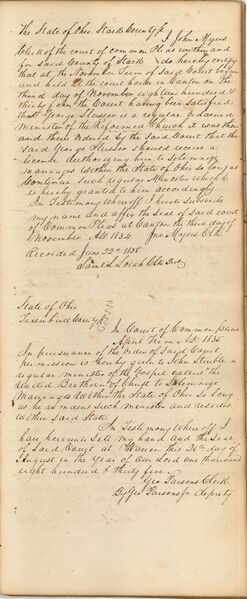 The State of Ohio Stark County ss
I John Myers
Clerk of the court of common Pleas within and
for said County of Stark do hereby certify
that at the November Term of said Court begun
and held at the court house in Canton on the
third day of November eighteen hundred &
thirty four the Court having been satisfied
that George Slessor is a regular ordained
Minister of the Reformed Church it was then
and there ordered by the said Court that the
said George Slessor should receive a
license authorizing him to solemnize
marriages within the State of Ohio so long as
Continue such regular Minister which is
hereby granted to him accordingly
In Testimony whereof I hereto subscribe
my name and affix the seal of said court
of Common Pleas at Canton the third day of
November AD 1834. Jno Myers Clk
Recorded June 22nd 1835
Saml S. Clk
State of Ohio
Trumbull County
In Court of Common pleas
April Term AD 1835
In pursuance of the order of said Court
permission is hereby given to John a
regular minister of the Gospel called the
United Brethren of Christ to solemnize
Marriages within the State of Ohio so long
as he such minister and resides
within said State
In Testimony Whereof I
have hereunto Sett my hand and the Seal
of Said Court at Warren this 20th day of
August in the Year of Our Lord One thousand
eight hundred & thirty five
Geo Parsons Clerk
By Geo Parsons Jr deputy